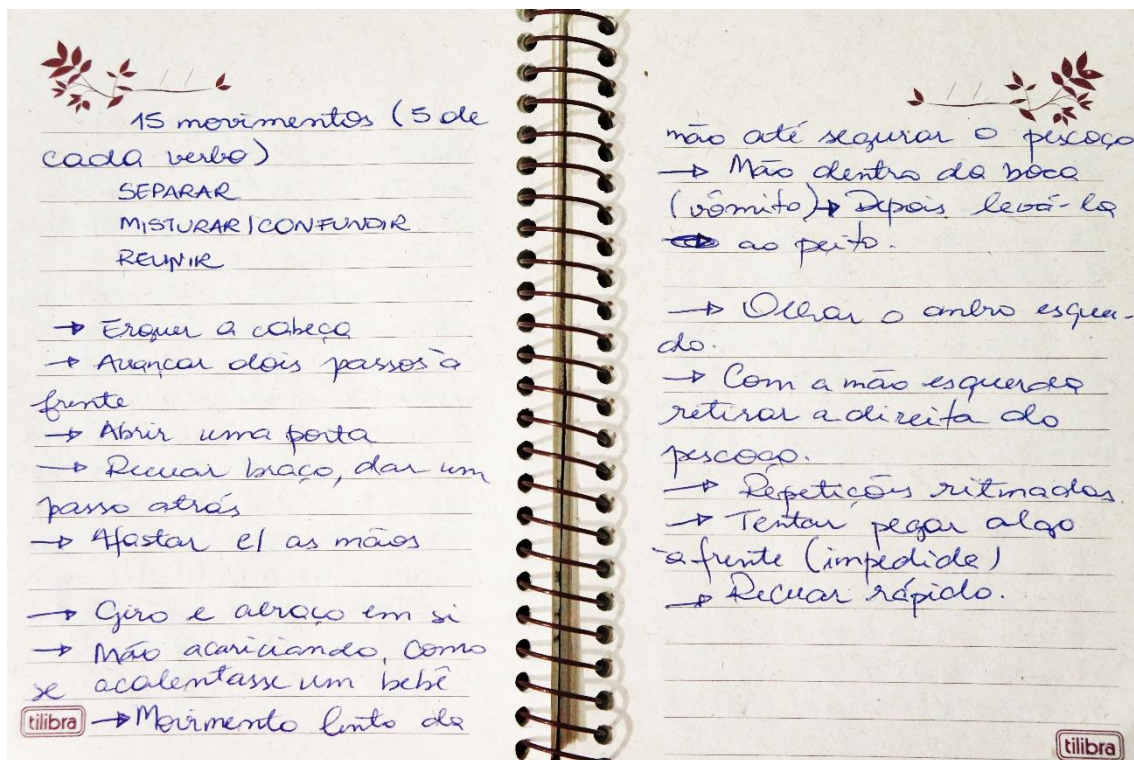 15 movimentos (5 de
cada verbo)
SEPARAR
MISTURAR/CONFUNDIR
REUNIR
→ Erguer a cabeça
→ Avançar dois passos à
frente
→ Abrir uma porta
→ Recuar braço, dar um
passo atrás
→ Afastar c/ as mãos
→ Giro e abraço em si
→ Mão acariciando, como
se acalentasse um bebê
→ Movimento lento da
tilibra
mão até segurar o pescoço
→ Mão dentro da boca
(vômito) → Depois levá-la
ao peito.
→ Olhar o ombro esquer-
do.
→ Com a mão esquerda
retirar a direita do
pescoço.
→ Repetições ritmadas.
→ Tentar pegar algo
à frente (impedida)
→ Recuar rápido.
tilibra